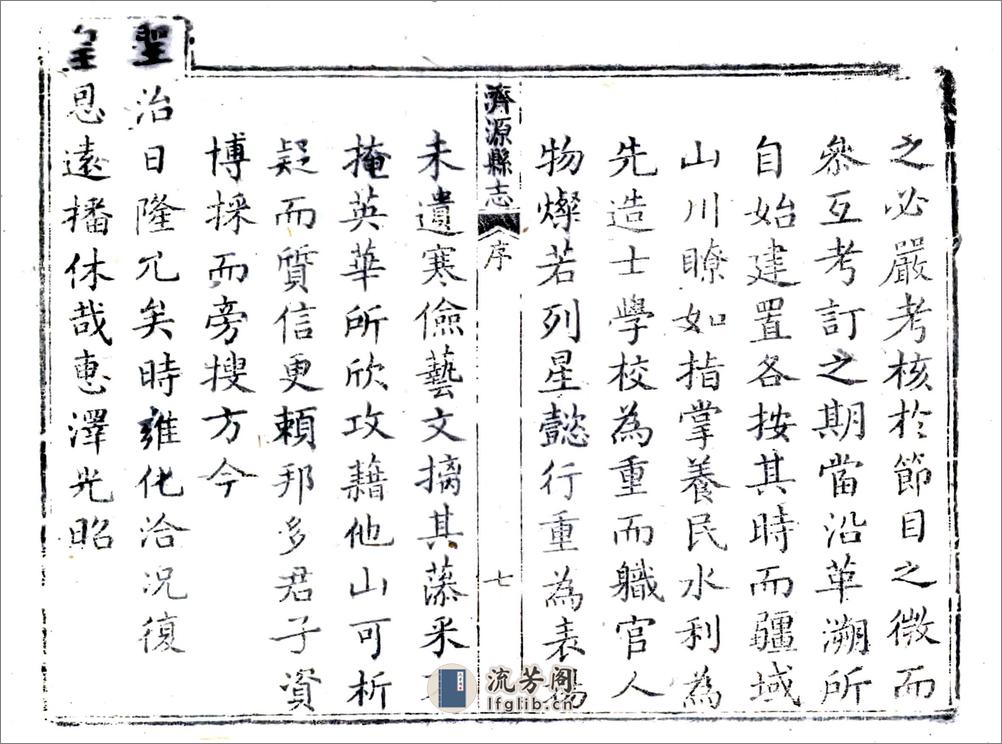 之必嚴考核於節目之微而
叅互考訂之期當沿革溯所
自始建置各按其時而疆域
山川瞭如指掌養民水利為
先造士學校為重而職官人
物燦若列星懿行重為表揚
濟源縣志
序
七
未遺寒儉藝文摛其藻采
掩英華所欣攻藉他山可析
疑而質信更賴邦多君子資
博採而旁搜方今
聖治日隆凡矣時雍化洽况復
皇恩遠播休哉惠澤光昭
流芳阁
lfglib.cn